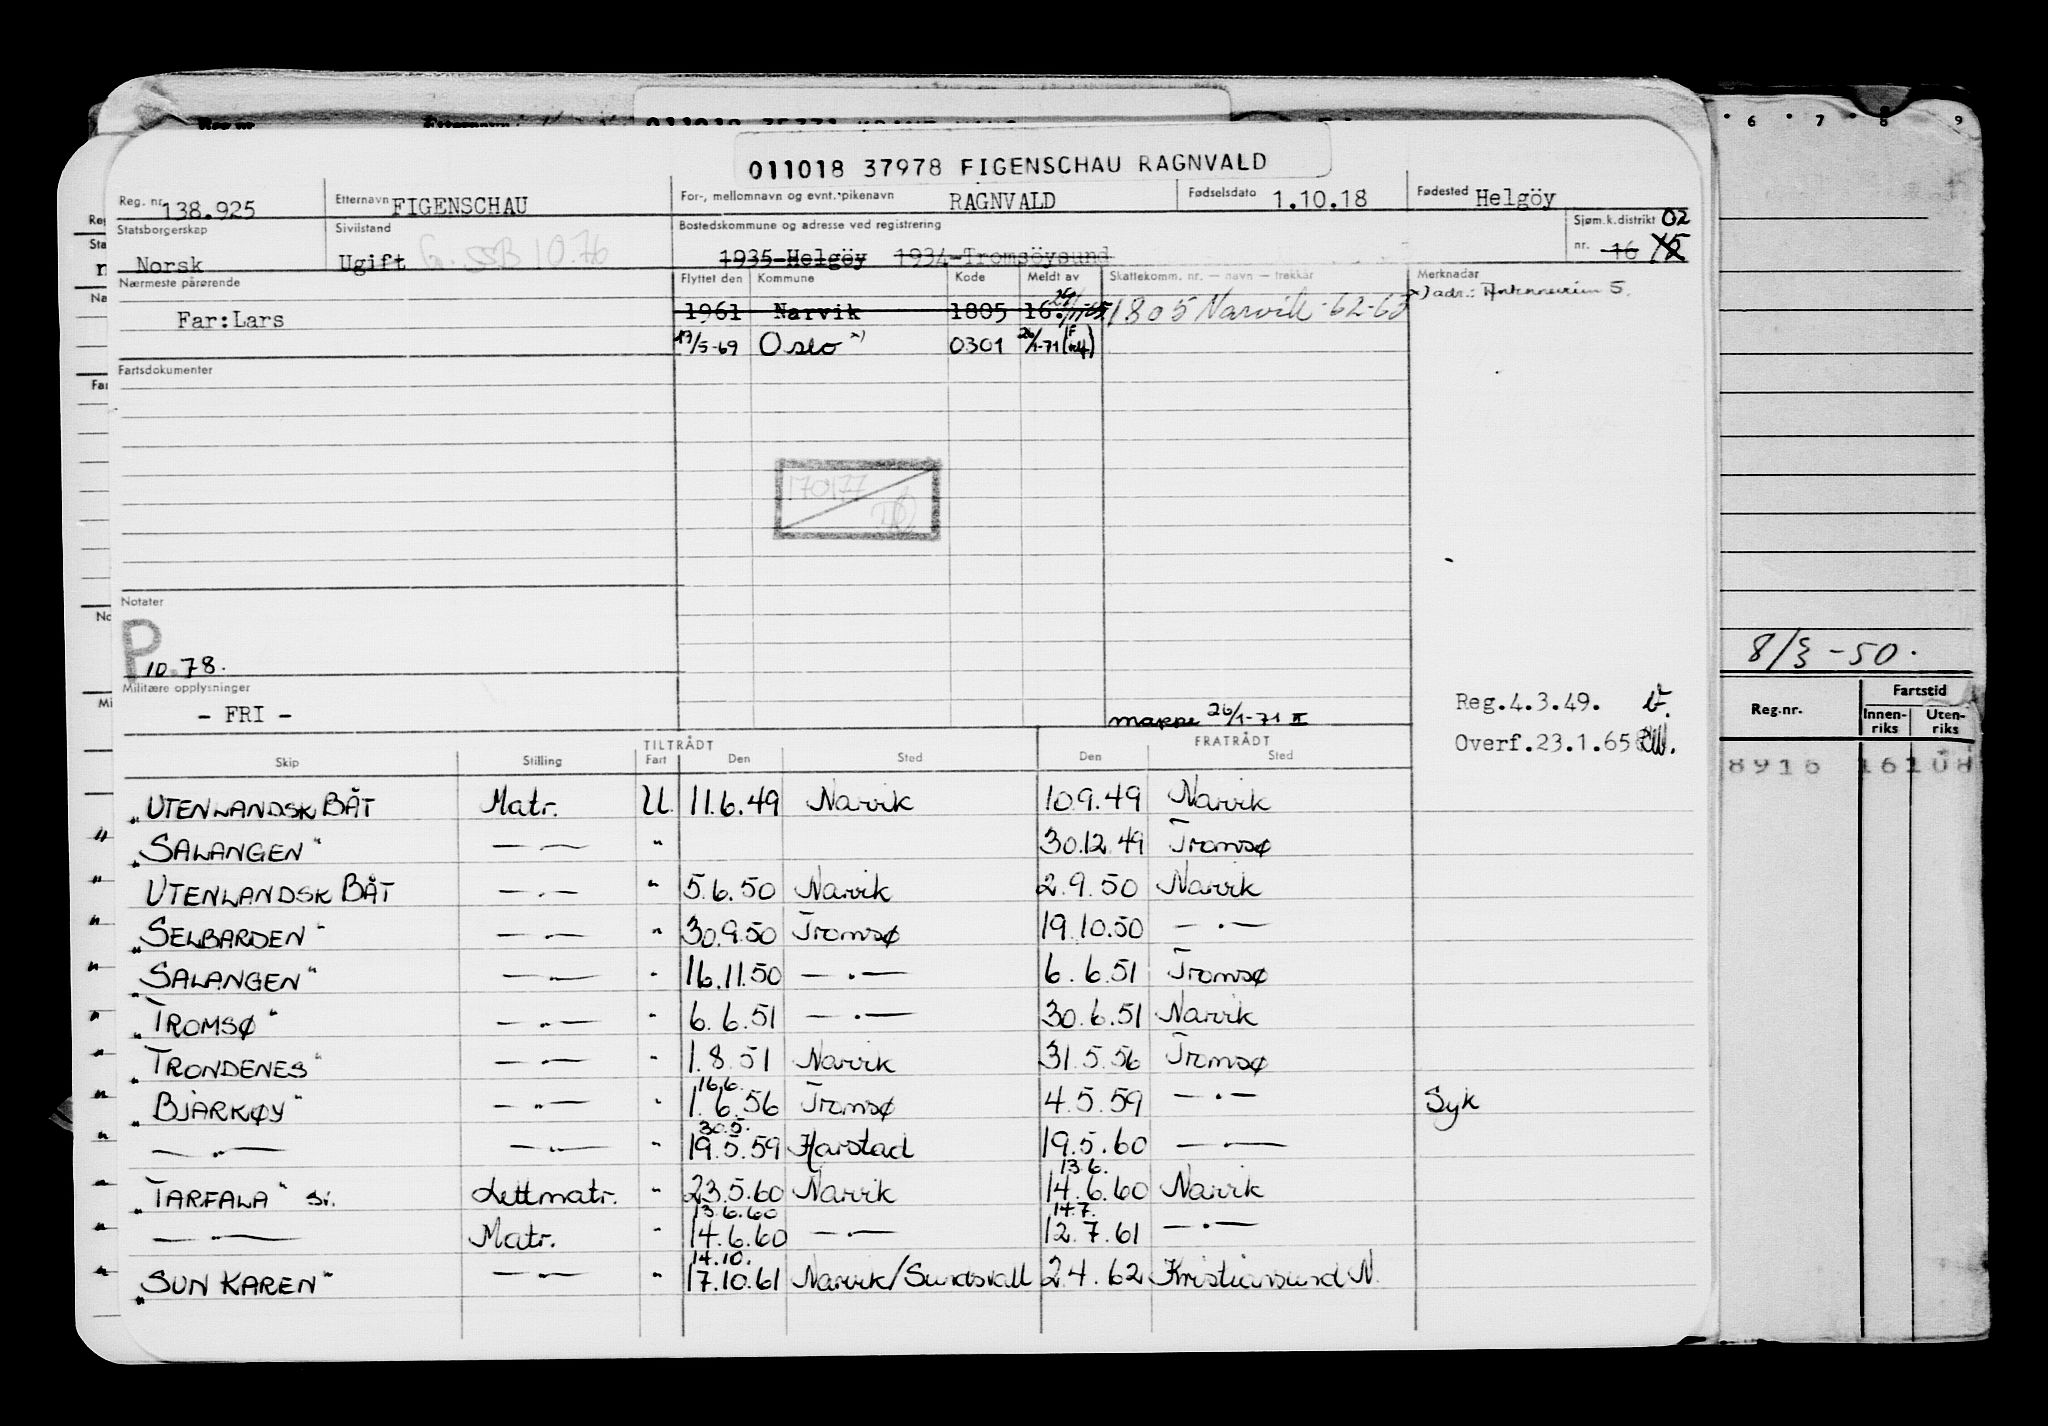 011018 37978 FIGENSCHAU RAGNVALD
Reg. nr. 138.925 Etternavn FIGENSCHAU For-, mellomnavn og evnt. pikenavn RAGNVALD Fødselsdato 1.10.18 Fødested Helgöy
Statsborgerskap Norsk Sivilstand Ugift G. SSB 10.76 Bostedskommune og adresse ved registrering 1935-Helgöy 1934-Tromsöysund Sjøm.k.distrikt nr. 16 15 02
Nærmeste pårørende Flyttet den Kommune Kode Meldt av Skattekomm. nr. — navn — trekkår Merknader
Far: Lars 1961 Narvik 1805 16. 1805 Narvik-62-63 x) adr.: 5.
19/5-69 Oslo x) 0301 26/1-71
Fartsdokumenter
170177
Notater
P
10.78.
Militære opplysninger
- FRI - mappe 26/1-71 II
Reg.4.3.49.
Overf.23.1.65
TILTRÅDT FRATRÅDT
Skip Stilling Fart Den Sted Den Sted
„UTENLANDSK BÅT Matr. U. 11.6.49 Narvik 10.9.49 Narvik
„SALANGEN" —.— " 30.12.49 Tromsø
UTENLANDSK BÅT —.— " 5.6.50 Narvik 2.9.50 Narvik
„SELBARDEN" —.— " 30.9.50 Tromsø 19.10.50 —.—
„SALANGEN" —.— " 16.11.50 —.— 6.6.51 Tromsø
„TROMSØ" —.— " 6.6.51 —.— 30.6.51 Narvik
„TRONDENES" —.— " 1.8.51 Narvik 31.5.56 Tromsø
16.6.
„BJARKØY" —.— " 1.6.56 Tromsø 4.5.59 —.— Syk
30.5.
—.— —.— " 19.5.59 Harstad 19.5.60 —.—
13.6.
„TARFALA" sv. Lettmatr. " 23.5.60 Narvik 14.6.60 Narvik
13.6.60 14.7.
—.— Matr. " 14.6.60 —.— 12.7.61 —.—
14.10.
„SUN KAREN" —.— " 17.10.61 Narvik/Sundsvall 2.4.62 Kristiansund N.
6 7 8 9
8/3-50.
Reg.nr. Fartstid
Innen-riks Uten-riks
8916 16108